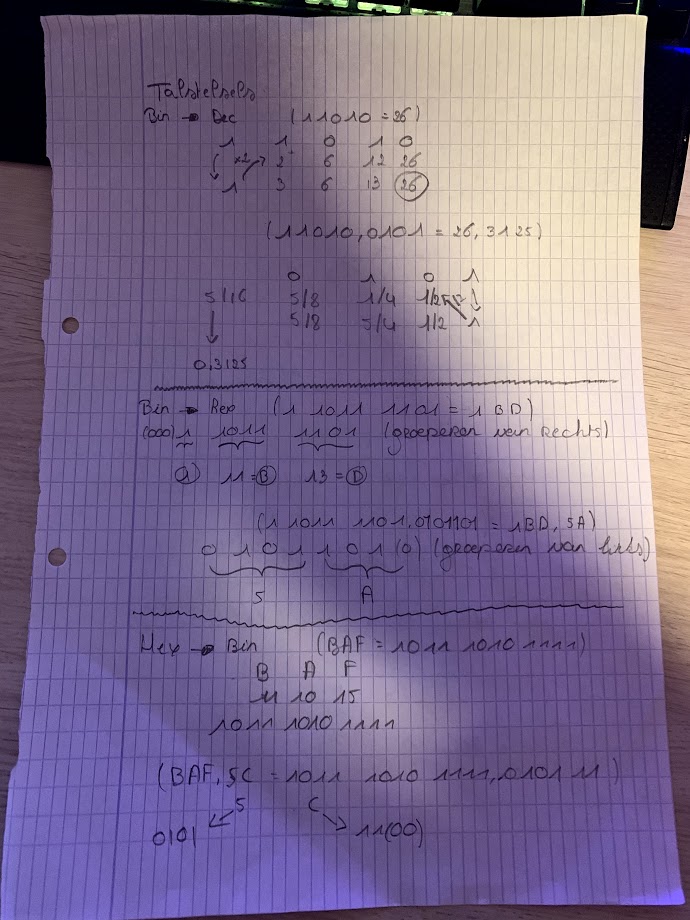 Talstelsels
Bin → Dec (11010 = 26)
1 1 0 1 0
x2 2 6 12 26
1 3 6 13 26
(11010,0101 = 26,3125)
0 1 0 1
5/16 5/8 1/4 1/2
5/8 5/4 1/2 1
0,3125
Bin → Hex (1 1011 1101 = 1BD)
(000)1 1011 1101 (groeperen van rechts)
1 11=B 13=D
(1 1011 1101,0101101 = 1BD,5A)
0 1 0 1 1 0 1 (0) (groeperen van links)
5 A
Hex → Bin (BAF = 1011 1010 1111)
B A F
11 10 15
1011 1010 1111
(BAF,5C = 1011 1010 1111,0101 11)
5 C
0101 11(00)